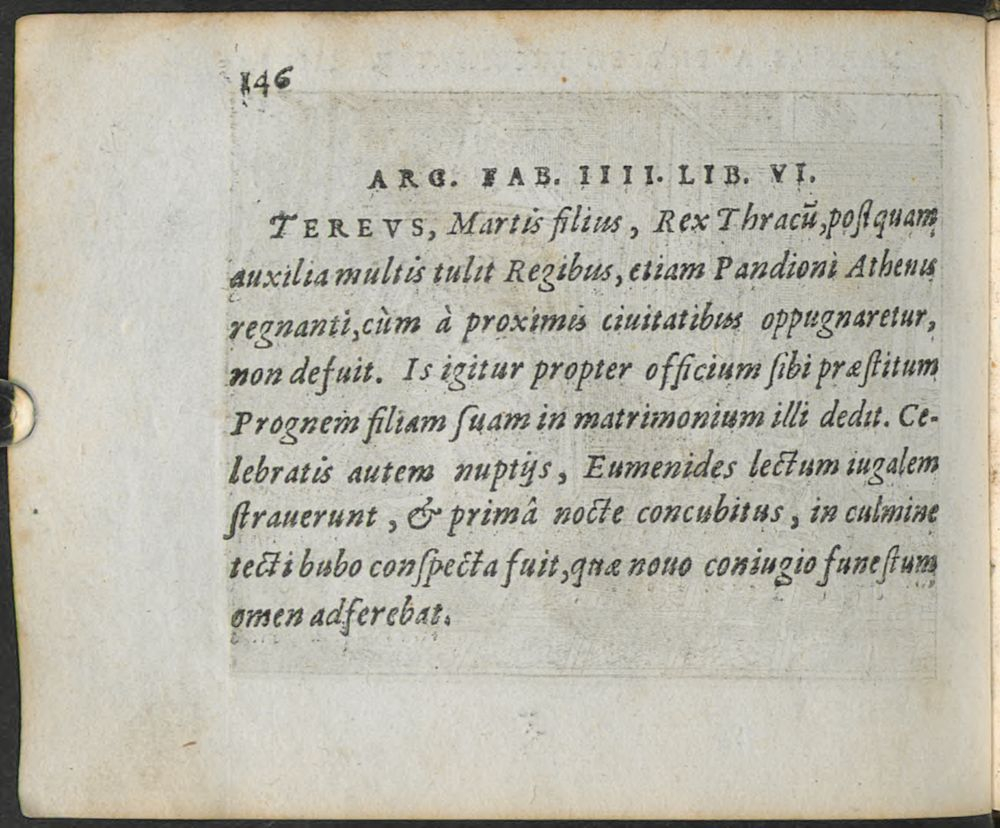 146
ARG. FAB. IIII. LIB. VI.
TEREVS, Martis filius, Rex Thracũ, poſtquam
auxilia multis tulit Regibus, etiam Pandioni Athenis
regnanti, cùm à proximis ciuitatibus oppugnaretur,
non defuit. Is igitur propter officium ſibi præſtitum
Prognem filiam ſuam in matrimonium illi dedit. Ce-
lebratis autem nuptijs, Eumenides lectum iugalem
ſtrauerunt, & primâ nocte concubitus, in culmine
tecti bubo conſpecta fuit, quæ nouo coniugio funeſtum
omen adferebat.